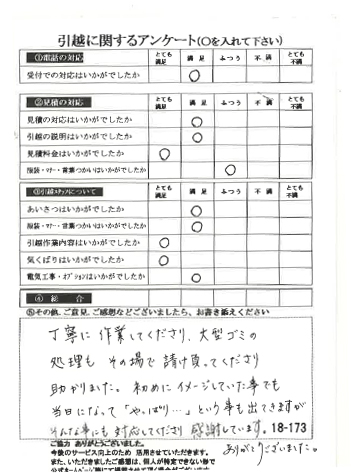 引越に関するアンケート(〇を入れて下さい)
①電話の対応 とても満足 満足 ふつう 不満 とても不満
受付での対応はいかがでしたか 〇
②見積の対応 とても満足 満足 ふつう 不満 とても不満
見積の対応はいかがでしたか 〇
引越の説明はいかがでしたか 〇
見積料金はいかがでしたか 〇
服装・マナー・言葉づかいはいかがでしたか 〇
③引越スタッフについて とても満足 満足 ふつう 不満 とても不満
あいさつはいかがでしたか 〇
服装・マナー・言葉づかいはいかがでしたか 〇
引越作業内容はいかがでしたか 〇
気くばりはいかがでしたか 〇
電気工事・オプションはいかがでしたか 〇
④ 総 合
⑤その他、ご意見、ご感想などございましたら、お書き添えください
丁寧に作業してくださり、大型ゴミの
処理もその場で請け負ってくださり
助かりました。初めにイメージしていた事でも
当日になって「やっぱり…」という事も出てきますが
そんな事にも対応してくださり感謝しています。18-173
ありがとうございました。
ご協力 ありがとうございました。
今後のサービス向上のため 活用させていただきます。
また、いただきましたご感想は、個人が特定できない形で